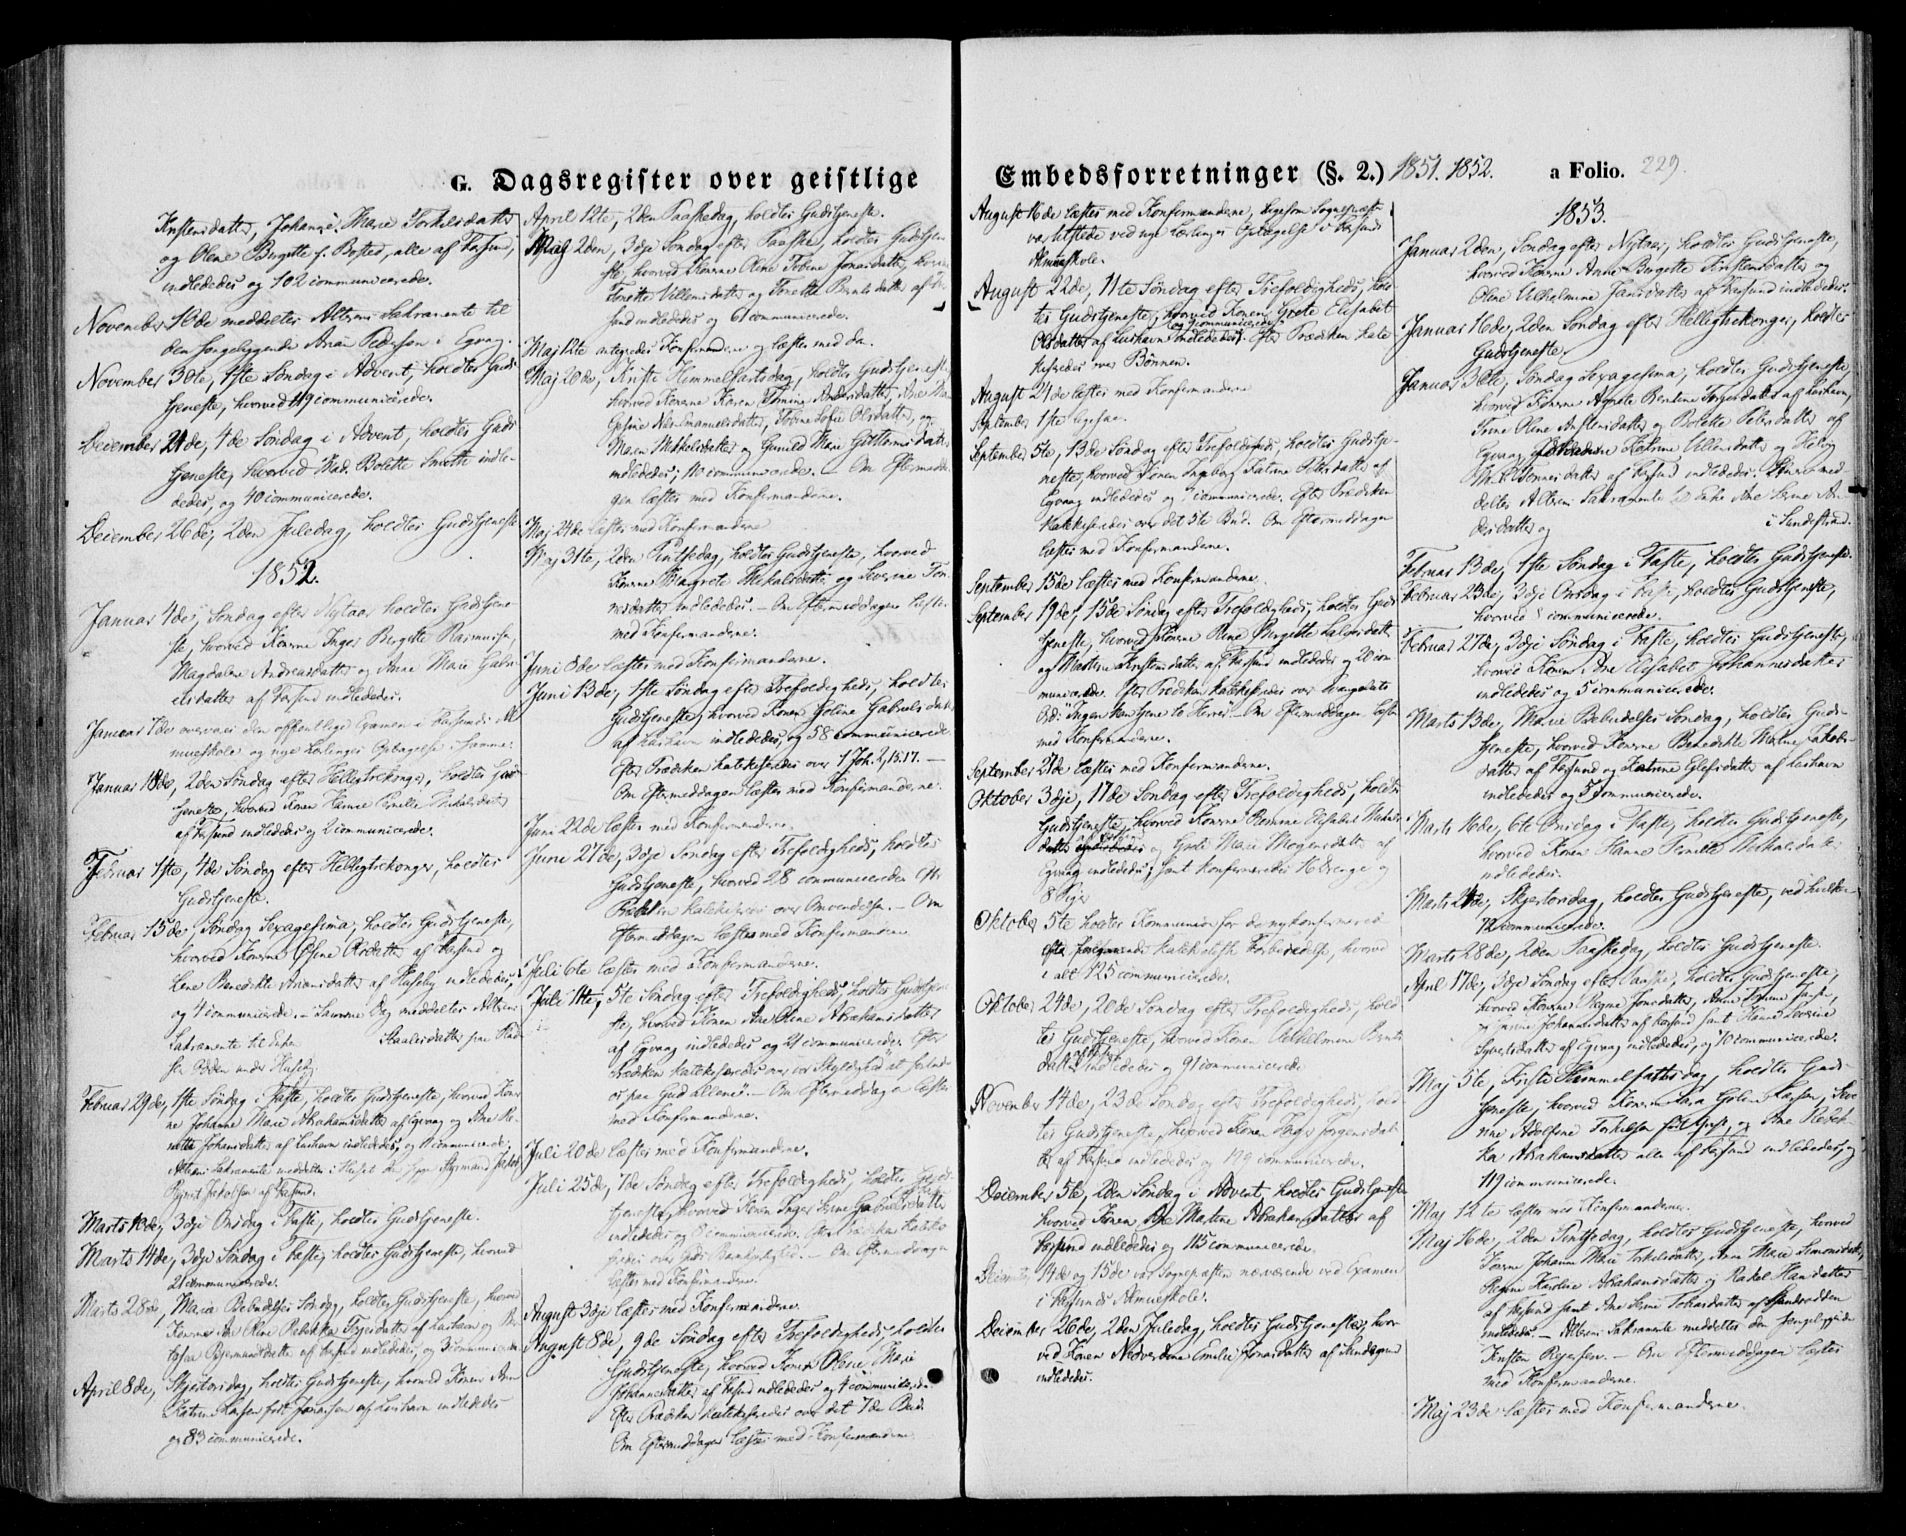 G. Dagsregister over geistlige
Kristensdatter, Johanne Marie Torkelsdatter
og Olene Birgitte f. Bosted, alle af Farsund,
indledede; og 102 communicerede.
November 16de meddeltes Alterens Sakramente til
den sengeliggende Arian Pedersen i Egvaag.
November 30te, 1ste Søndag i Advent, holdtes Guds-
tjeneste, hvorved 119 communicerede.
December 21de, 4de Søndag i Advent, holdtes Guds-
tjeneste, hvorved Mad. Bolette indle-
dedes, og 40 communicerede.
December 26de, 2den Juledag, holdtes Gudstjeneste
1852.
Januar 4de, Søndag efter Nytaar holdtes Gudstjene-
ste, hvorved Konerne Inger Bergitte Rasmusen,
Magdalene Andreasdatter og Anne Marie Gabri-
elsdatter af Farsund indlededes.
Januar 7de overvar den offentlige Examen i Farsunds Al-
mueskole og nye Lærlinges Optagelse i Samme.
Januar 18de, 2den Søndag efter Hellegtrekonger, holdtes Guds-
tjeneste, hvorved Konen Hanne Pernille Mikalsdatter
af Farsund indlededes og 2 communicerede.
Februar 1ste, 4de Søndag efter Hellegtrekonger, holdtes
Gudstjeneste.
Februar 15de, Søndag Sexagesima, holdtes Gudstjeneste,
hvorved Konerne af Farsund og
Lene Benedikte Ariansdatter af Huseby indlededes,
og 4 communicerede. – Samme Dag meddeltes Alterens
Sakramente til Enken Staalesdatter paa
under Huseby.
Februar 29de, 1ste Søndag i Faste, holdtes Gudstjeneste, hvorved Koner-
ne Johanne Marie Abrahamsdatter af Egvaag og Ane
Johansdatter af Lushavn indlededes, og communicerede;
Alterens Sakramente meddeltes i Huset
Jakobsen af Farsund.
Marts 10de, 3dje Onsdag i Faste, holdtes Gudstjeneste.
Marts 14de, 3dje Søndag i Faste, holdtes Gudstjeneste, hvorved
21 communicerede.
Marts 28de, Mariæ Bebudelses Søndag, holdtes Gudstjeneste, hvorved
Konerne Ane Oline Rebekka Tryesdatter af Lushavn og
af Farsund indlededes, og 3 communicerede
April 8de, Skjertorsdag, holdtes Gudstjeneste, hvorved Konen Ane
Katrine Larsen født Jonassen af Lushavn indlededes
og 83 communicerede.
April 12te, 2den Paaskedag, holdtes Gudstjeneste.
Maj 2den, 3dje Søndag efter Paaske, holdtes Gudstjene-
ste, hvorved Konerne Oline Tobine Jonasdatter,
Tonette Villemsdatter og Tonette Berntsdatter af Far-
sund indlededes og 6 communicerede.
Maj 12te antegnedes Konfirmanderne og læstes med dem.
Maj 20de, Kristi Himmelfartsdag, holdtes Gudstjeneste,
hvorved Konerne Karen Tomine Andersdatter, Ane
Gesine Emanuelsdatter, Tobine Sofie Olsdatter, og
Maren Mikkelsdatter og Gunild Marie Guttormsdatter
indlededes; 10 communicerede. – Om Eftermidda-
gen læstes med Konfirmanderne.
Maj 24de læstes med Konfirmanderne
Maj 31te, 2den Pintsedag, holdtes Gudstjeneste, hvorved
Konerne Margrete Mikalsdatter og Severine Ton-
nesdatter indlededes. – Om Eftermiddagen læstes
med Konfirmanderne.
Juni 8de læstes med Konfirmanderne.
Juni 13de, 1ste Søndag efter Trefoldigheds, holdtes
Gudstjeneste, hvorved Konen Goline Gabrielsdatter
af Lushavn indlededes, og 58 communicerede
Efter Prædiken katekiseredes over 1 Joh. 2, 15.17. –
Om Eftermeddagen læstes med Konfirmanderne.
Juni 22de læstes med Konfirmanderne.
Juni 27de, 3dje Søndag efter Trefoldigheds, holdtes
Gudstjeneste, hvorved 28 communicerede. Eftr
Prædiken katekiseredes over Omvendelsen. – Om
Eftermiddagen læstes med Konfirmanderne
Juli 6te læstes med Konfirmanderne.
Juli 11te, 5te Søndag efter Trefoldigheds, holdtes Gudstjene-
ste, hvorved Konen Ane Oline Abrahamsdatter
af Egvaag indlededes og 21 communicerede. Efter
Prædiken katekiseredes over vor Skyldighed "at forlade
os paa Gud allene". – Om Eftermeddagen læstes
med Konfirmanderne.
Juli 20de læstes med Konfirmanderne.
Juli 25de, 7de Søndag efter Trefoldigheds, holdtes Guds-
tjeneste, hvorved Konen Inger Gabrielsdatter
indlededes og 8 communicerede. Efter Prædiken kateki-
seredes over Guds Barmhjertighed. – Om Eftermiddagen
læstes med Konfirmanderne.
August 3dje læstes med Konfirmanderne.
August 8de, 9de Søndag efter Trefoldigheds, holdtes
Gudstjeneste, hvorved Konen Olene Marie
Johannesdatter af Farsund indlededes og 4 communicerede.
Efter Prædiken katekiseredes over det 7de Bud.
Om Eftermiddagen læstes med Konfirmanderne.
Embedsforretninger (§. 2.) 1851. 1852. a Folio. 229.
August 16de læstes med Konfirmanderne, ligesom Sognepræsten
var tilstede ved nye Lærlinges Optagelse i Farsunds
Almueskole.
August 22de, 11te Søndag efter Trefoldigheds, hol-
tes Gudstjeneste, hvorved Konen Grete Elisabet
og 9 communicerede
Olsdatter af Lushavn indlededes. Efter Prædiken kate-
kiseredes over Bønnen.
August 24de læstes med Konfirmanderne
September 1ste ligesaa.
September 5te, 13de Søndag efter Trefoldigheds, holdtes Gudstje-
neste, hvorved Konen Ingeborg Katrine Petersdatter af
Egvaag indlededes og 7 communicerede. Efter Prædiken
katekiseredes over det 5te Bud. Om Eftermiddagen
læstes med Konfirmanderne.
September 15de læstes med Konfirmanderne.
September 19de, 15de Søndag efter Trefoldigheds, holdtes Guds-
tjeneste, hvorved Konerne Rene Bergitte
og Martine Kristensdatter af Farsund indlededes og 20 com-
municerede. Efter Prædiken katekiseredes over Evangeliets
Ord: "Ingen kan tjene to Herrer." – Om Eftermiddagen læstes
med Konfirmanderne.
September 21de læstes med Konfirmanderne.
Oktober 3dje, 17de Søndag efter Trefoldigheds, holdtes
Gudstjeneste, hvorved Konerne Elisabet
og Grete Marie Mogensdatter af
Egvaag indlededes; samt konfirmeredes 16 Drenge og
8 Piger
Oktober 5te holdtes Kommunion for de nykonfirmerede
efter foregaaende katekistisk Forberedelse, hvorved
i alt 125 communicerede.
Oktober 24de, 20de Søndag efter Trefoldigheds, hold-
tes Gudstjeneste, hvorved Konen Vilhelmine Bernts-
datter indlededes og 91 communicerede
November 14de, 23de Søndag efter Trefoldigheds, hold-
tes Gudstjeneste, hvorved Konen Jørgensdat-
ter af Farsund indlededes og 119 communicerede.
December 5te, 2den Søndag i Advent, holdtes Gudstjeneste
hvorved Konen Ane Martine Abrahamsdatter af
Farsund indlededes og 115 communicerede.
December 14de og 15de var Sognepræsten nærværende ved Examen
i Farsunds Almueskole.
December 26de, 2den Juledag, holdtes Gudstjeneste, hvor-
ved Konen Emilie Jonasdatter af
indlededes.
1853.
Januar 2den, Søndag efter Nytaar, holdtes Gudstjeneste,
hvorved Konerne Anne Bergette Kristensdatter og
Oline Vilhelmine Jansdatter af Farsund indlededes.
Januar 16de, 2den Søndag efter Hellegtrekonger, holdtes
Gudstjeneste.
Januar 30te, Søndag Sexagesima, holdtes Gudstjeneste,
hvorved Konerne Agnete Bentine Torgersdatter af Lushavn,
Olene Kristensdatter og Bolette Petersdatter af
Egvaag, Katrine Villumsdatter og Helvig
Tønnesdatter af Farsund indlededes.
deltes Alterens Sakramente til Enke Ane Serine An-
dersdatter i Sundestrand.
Februar 13de, 1ste Søndag i Faste, holdtes Gudstjeneste.
Februar 23de, 3dje Onsdag i Faste, holdtes Gudstjeneste,
hvorved communicerede.
Februar 27de, 3dje Søndag i Faste, holdtes Gudstjeneste,
hvorved Konen Ane Elisabet Johannesdatter
indlededes og 5 communicerede.
Marts 13de, Mariæ Bebudelses Søndag, holdtes Guds-
tjeneste, hvorved Konerne Benedikte Maline Jakobs-
datter af Farsund og Katrine Eilefsdatter af Lushavn
indlededes og 5 communicerede.
Marts 16de, 6te Onsdag i Faste, holdtes Gudstjeneste,
hvorved Konen Hanne Pernille Mikalsdatter
indlededes.
Marts 24de, Skjertorsdag, holdtes Gudstjeneste, ved hvilken
72 communicerede.
Marts 28de, 2den Paaskedag, holdtes Gudstjeneste.
April 17de, 3dje Søndag efter Paaske, holdtes Gudstjeneste,
hvorved Konerne Regine Jonsdatter, Anne
og Johannesdatter af Farsund samt Hanne Severine
Syvertsdatter af Egvaag indlededes, og 10 communicerede.
Maj 5te, Kristi Himmelfartsdag, holdtes Guds-
tjeneste, hvorved Konerne Sara Goline Larsen, Seve-
rine Adolfine Torkelsen født, og Ane Rebek-
ka Abrahamsdatter alle af Farsund indlededes, og
119 communicerede.
Maj 12te læstes med Konfirmanderne.
Maj 16de, 2den Pintsedag, holdtes Gudstjeneste, hvorved
Konerne Johanne Marie Torkelsdatter, Anne Marie Simonsdatter,
Regine Karoline Abrahamsdatter og Rakel Hansdatter
af Farsund samt Ane Serine Tobiasdatter af
indlededes. – Alterens Sakramente meddeltes den sengeliggende
Kristen Rejersen. – Om Eftermiddagen læstes
med Konfirmanderne.
Maj 23de læstes med Konfirmanderne.